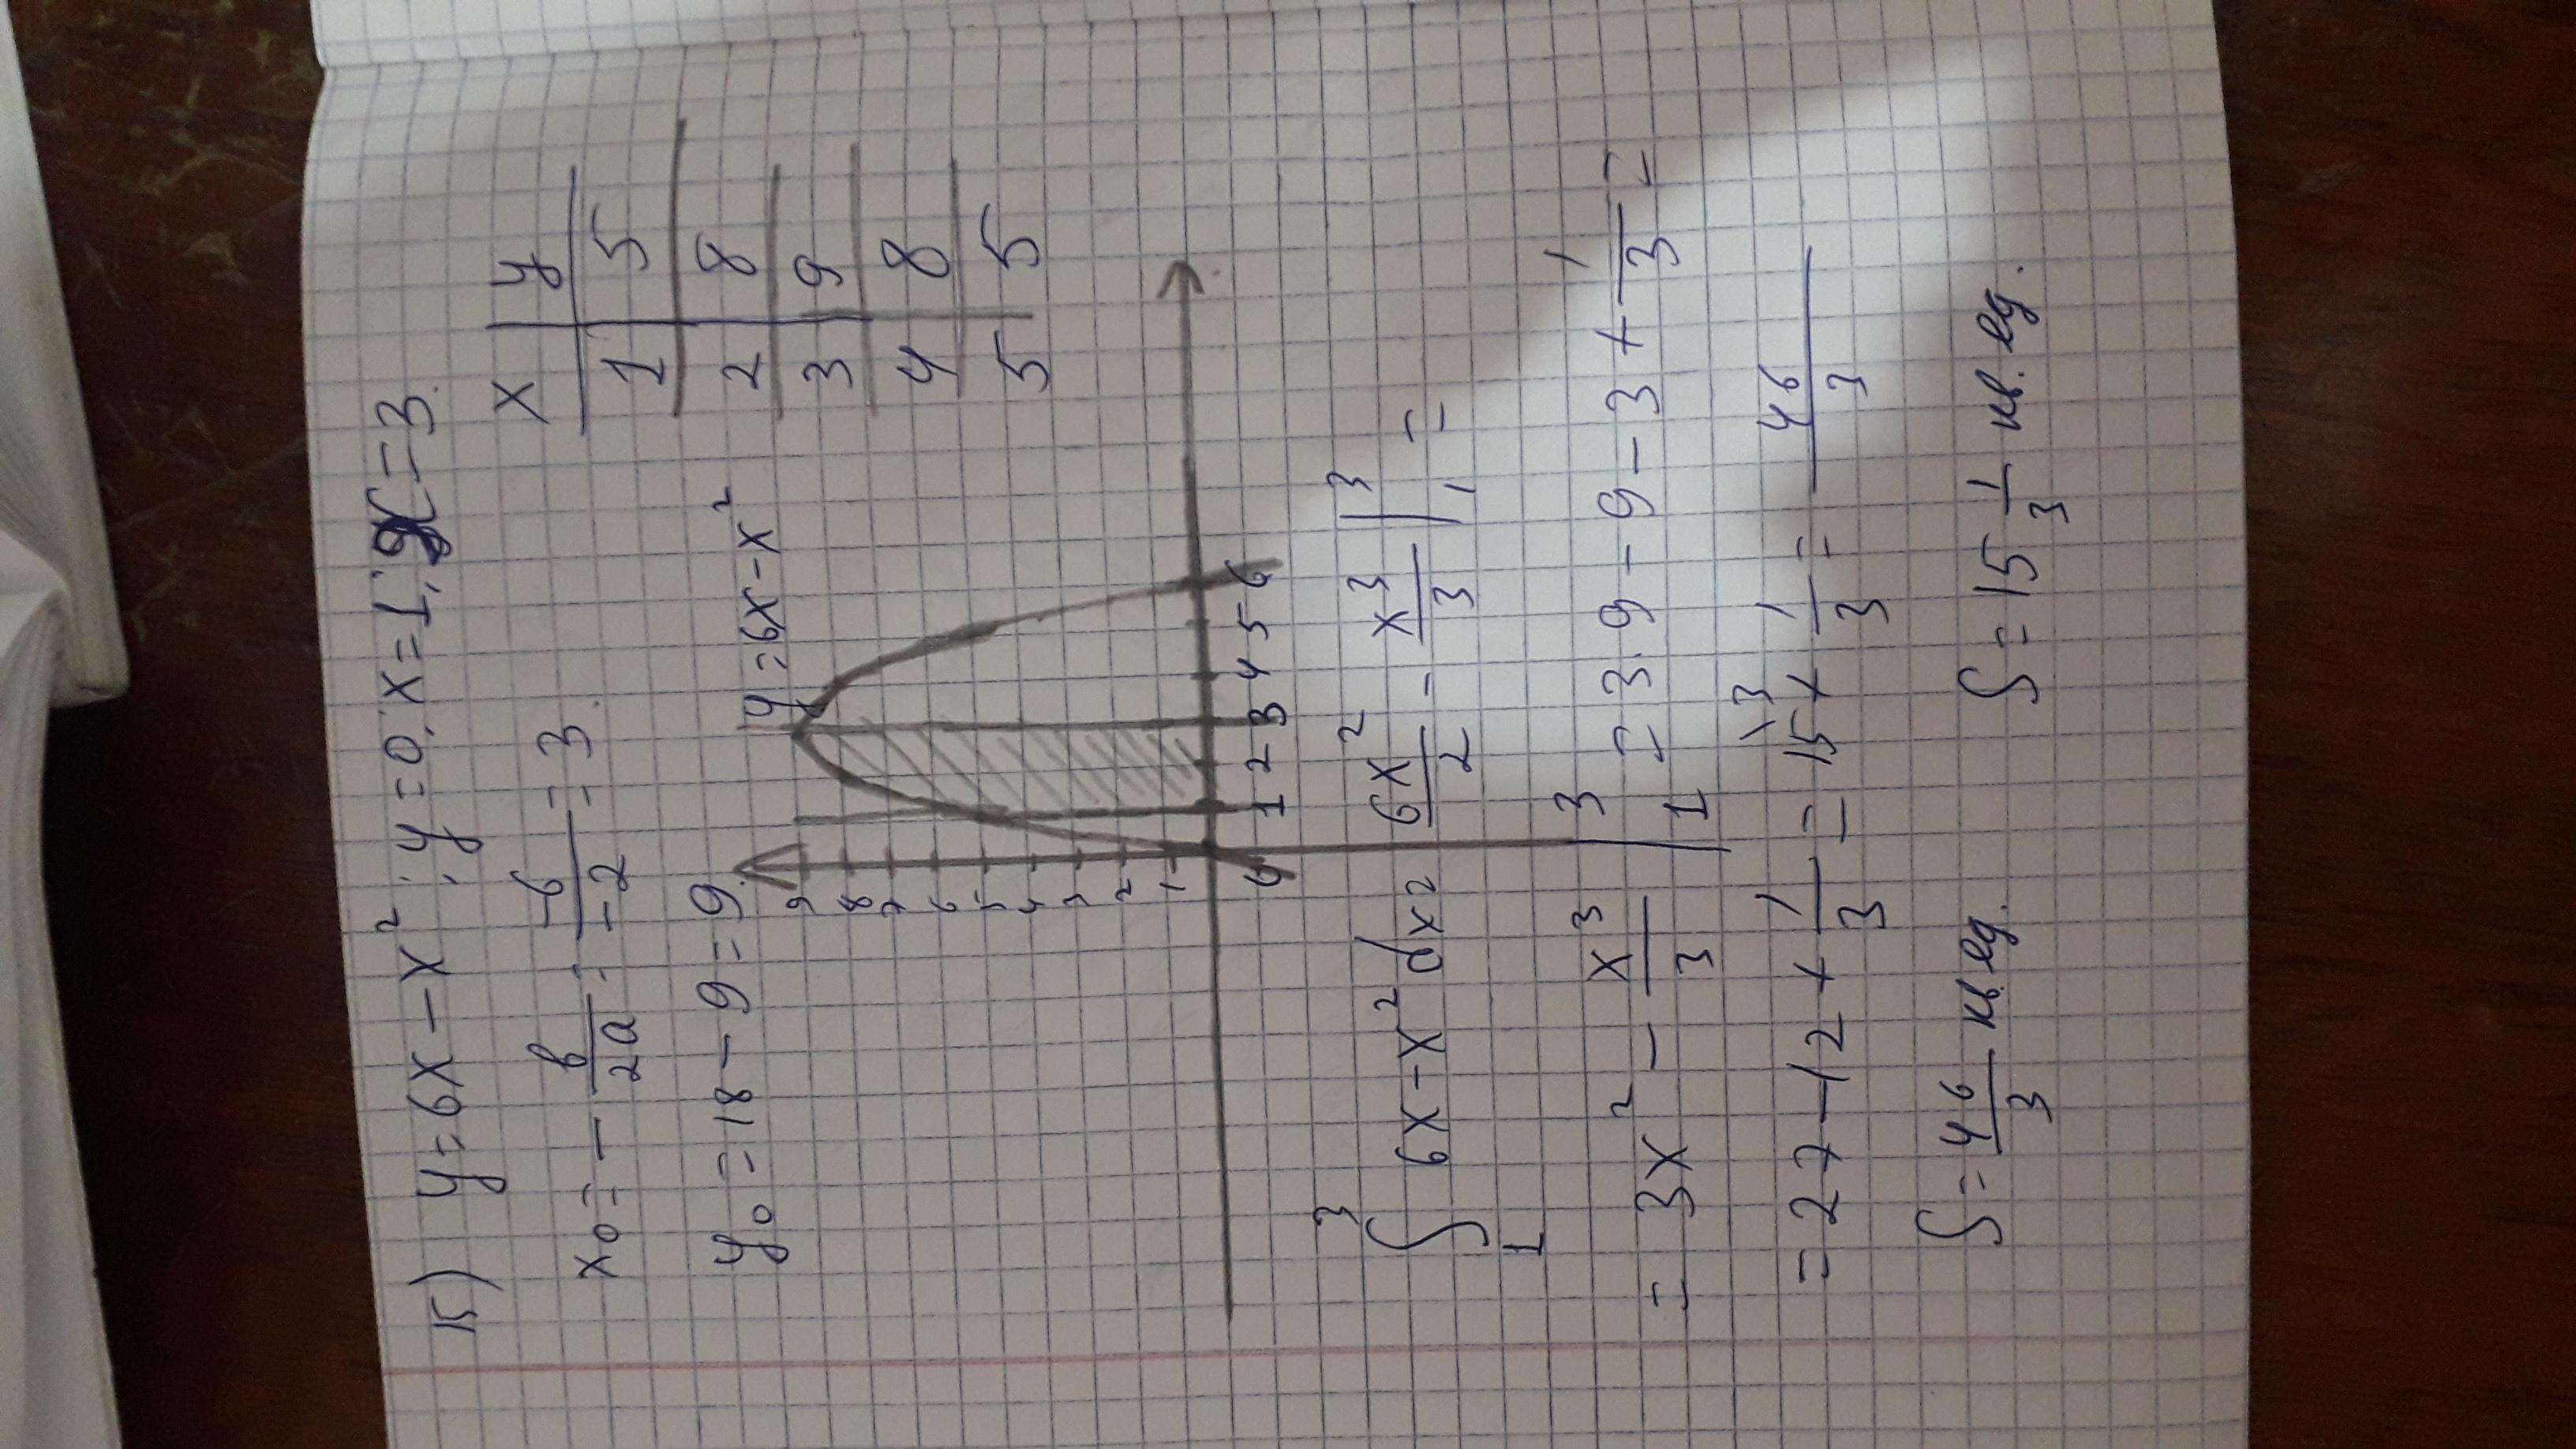 к) y = 6x − x²; y = 0; x = 1; x = 3.
x₀ = − в/2a = −6/−2 = 3.
x y
1 5
2 8
3 9
4 8
5 5
y₀ = 18 − 9 = 9.
y = 6x − x²
9
8
7
6
5
4
3
2
1
0 1 2 3 4 5 6
∫₁³ 6x − x² dx = 6x²/2 − x³/3 |₁³ =
= 3x² − x³/3 |₁³ = 3·9 − 9 − 3 + 1/3 =
= 27 − 12 + 1/3 = 15\³ + 1/3 = 46/3
S = 46/3 кв.ед. S = 15 1/3 кв. ед.